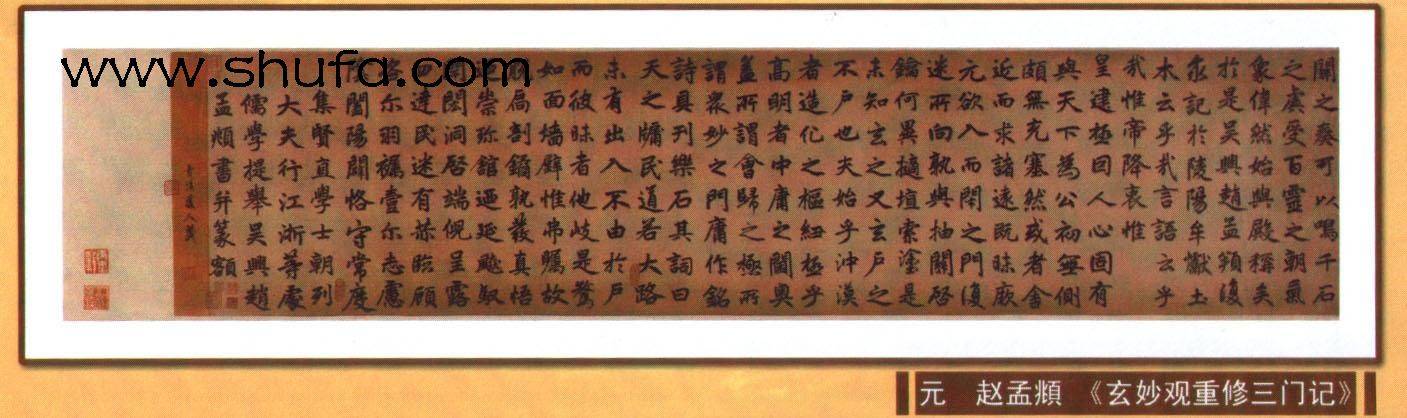 www.shufa.com
關之奏可以鳴千石
之虡受百靈之朝氣
象偉然始與殿稱矣
於是吳興趙孟頫復
求記於陵陽牟巘土
木云乎哉言語云乎
哉惟帝降衷惟
皇建極回人心固有
與天下為公初無側
頗無充塞然或者舍
近而求諸遠既昧厥
元欲入而閉之門復
迷所向孰與抽關啓
鑰何異擿埴索塗是
未知玄之又玄戶之
不戶也夫始乎沖漠
者造化之樞紐極乎
高明者中庸之閫奧
蓋所謂會歸之極所
謂衆妙之門庸作銘
詩具刊樂石其詞曰
天之牖民道若大路
未有出入不由於戶
而彼昧者他岐是騖
如面墻壁惟帛矚故
孰扃剖鐍孰發真悟
迺崇珎館迺延飈馭
閎閤洞啓端倪呈露
四達民迷有恭臨顧
咨尔羽襴壹尔志慮
陰闔陽闢恪守常度
集賢直學士朝列
大夫行江浙等處
儒學提舉吳興趙
孟頫書并篆額
元 赵孟頫 《玄妙观重修三门记》